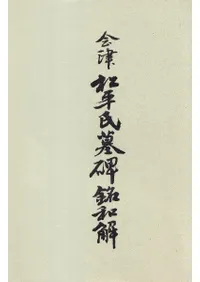 会津松平氏墓碑銘和解